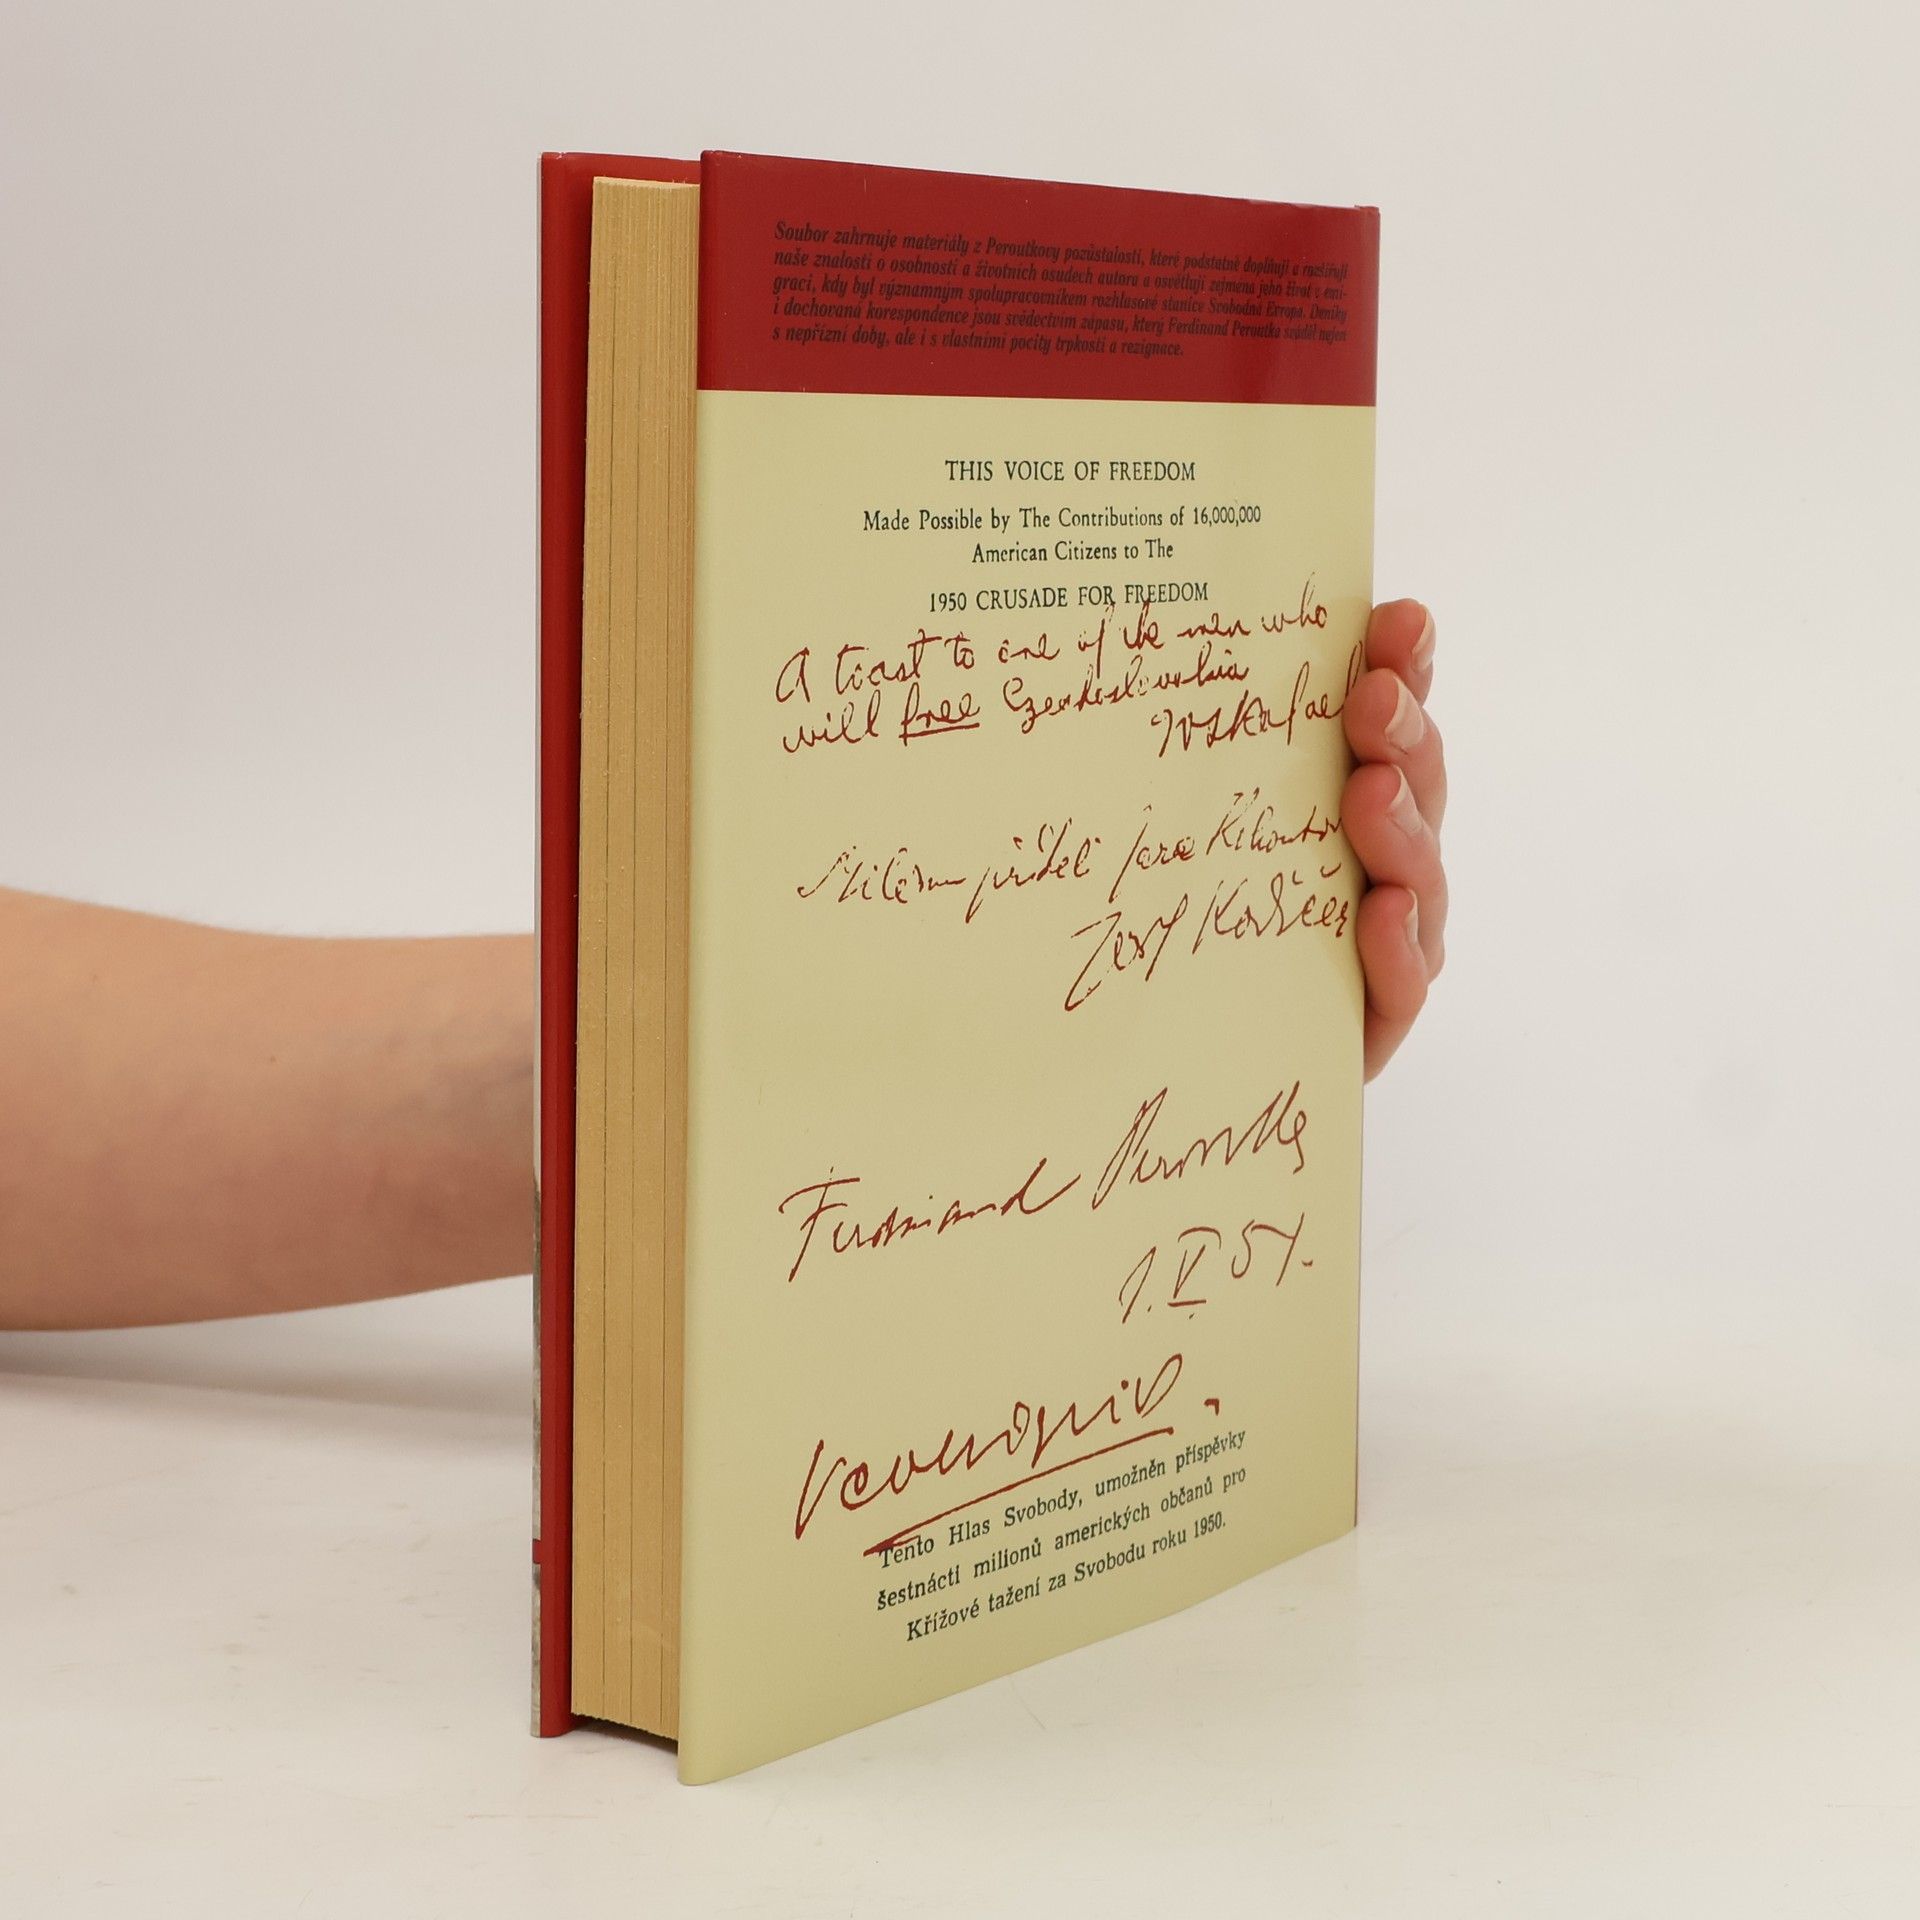 Soubor zahrnuje materiály z Peroutkovy pozůstalosti, které podstatně doplňují a rozšiřují
naše znalosti o osobnosti a životních osudech autora a osvětlují zejména jeho život v emi-
graci, kdy byl významným spolupracovníkem rozhlasové stanice Svobodná Evropa. Deníky
i dochovaná korespondence jsou svědectvím zápasu, který Ferdinand Peroutka sváděl nejen
s nepřízní doby, ale i s vlastními pocity trpkosti a rezignace.
THIS VOICE OF FREEDOM
Made Possible by The Contributions of 16,000,000
American Citizens to The
1950 CRUSADE FOR FREEDOM
A toast to one of the men who
will free Czechoslovakia
Josef
Ferdinand Peroutka
1. V 51.
Tento Hlas Svobody, umožněn příspěvky
šestnácti milionů amerických občanů pro
Křížové tažení za Svobodu roku 1950.